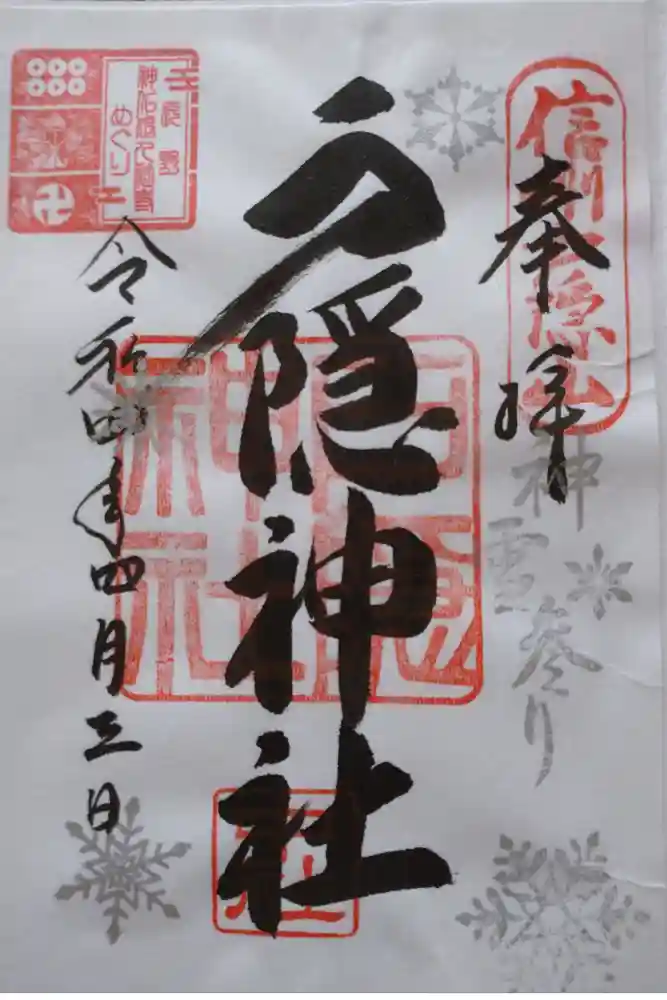 奉拝
信州戸隠山
神雪参り
戸隠神社
戸隠神社
令和四年四月三日
めぐり